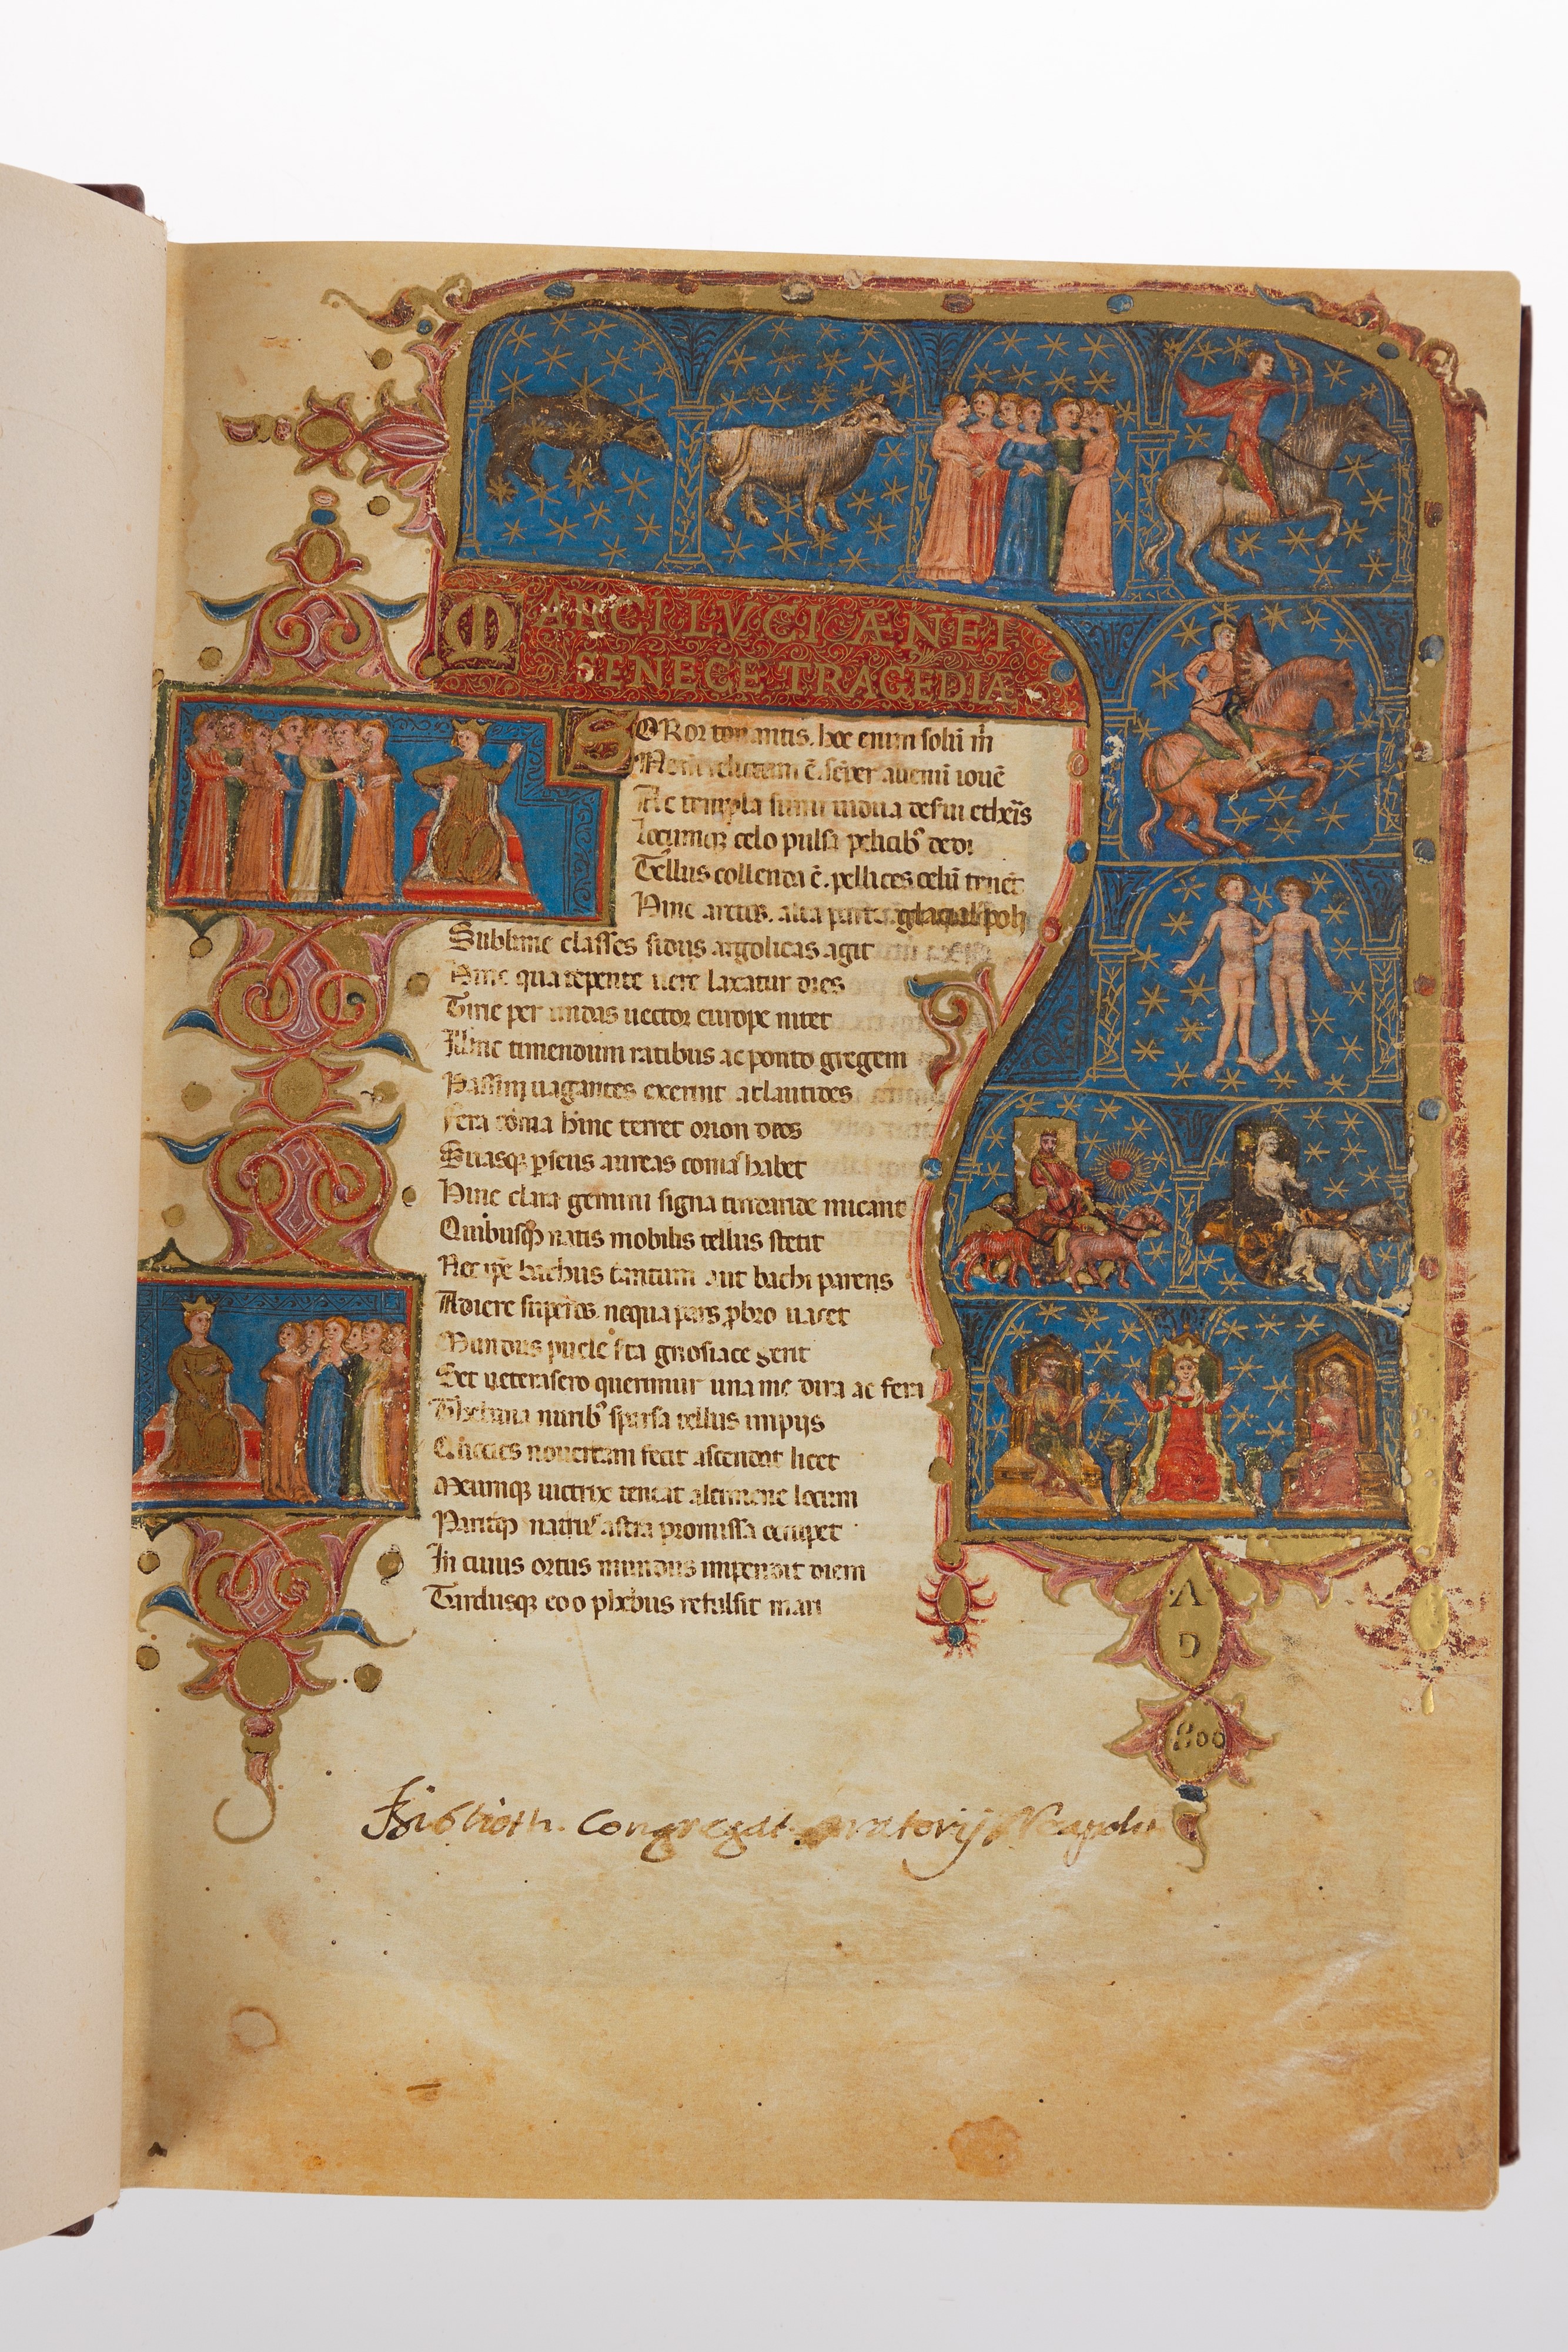 MARCI LVCI ÆNEI
SENECE TRAGEDIÆ
SORor tonantis. hoc enim solū m̄
ē. semper alienū iouē
Ac templa summi uidua deserui etheris
locumq; celo pulsa pelicibꝰ dedi
Tellus collenda ē. pellices celū tenēt
Hinc arctos. alta parte glacialis poli
Sublime classes sidus argolicas agit
Hinc qua tepente uere laxatur dies
Tirie per undas uector europe nitet
Illinc timendum ratibus ac ponto gregem
Passim uagantes exerunt atlantides
fera coma hinc terret orion deos
Suasq; pseus aureas comas habet
Hinc clara gemini signa tindaride micant
Quibusq; natis mobilis tellus stetit
Nec ipe bachus tantum aut bachi parens
Adiere superos. nequa pars probro uacet
Mundus puelle serta gnosiace gerit
Set uetera sero querimur una me dira ac fera
Thebana nuribꝰ sparsa tellus impijs
Quociens nouercam fecit ascendat licet
Meumq; uictrix teneat alcmene locum
Pariterq; natus astra promissa occupet
In cuius ortus mundus impendit diem
Tardusq; eoo phebus refulsit mari
·A·
D
800
Biblioth. Congregat. oratorij Neapolis